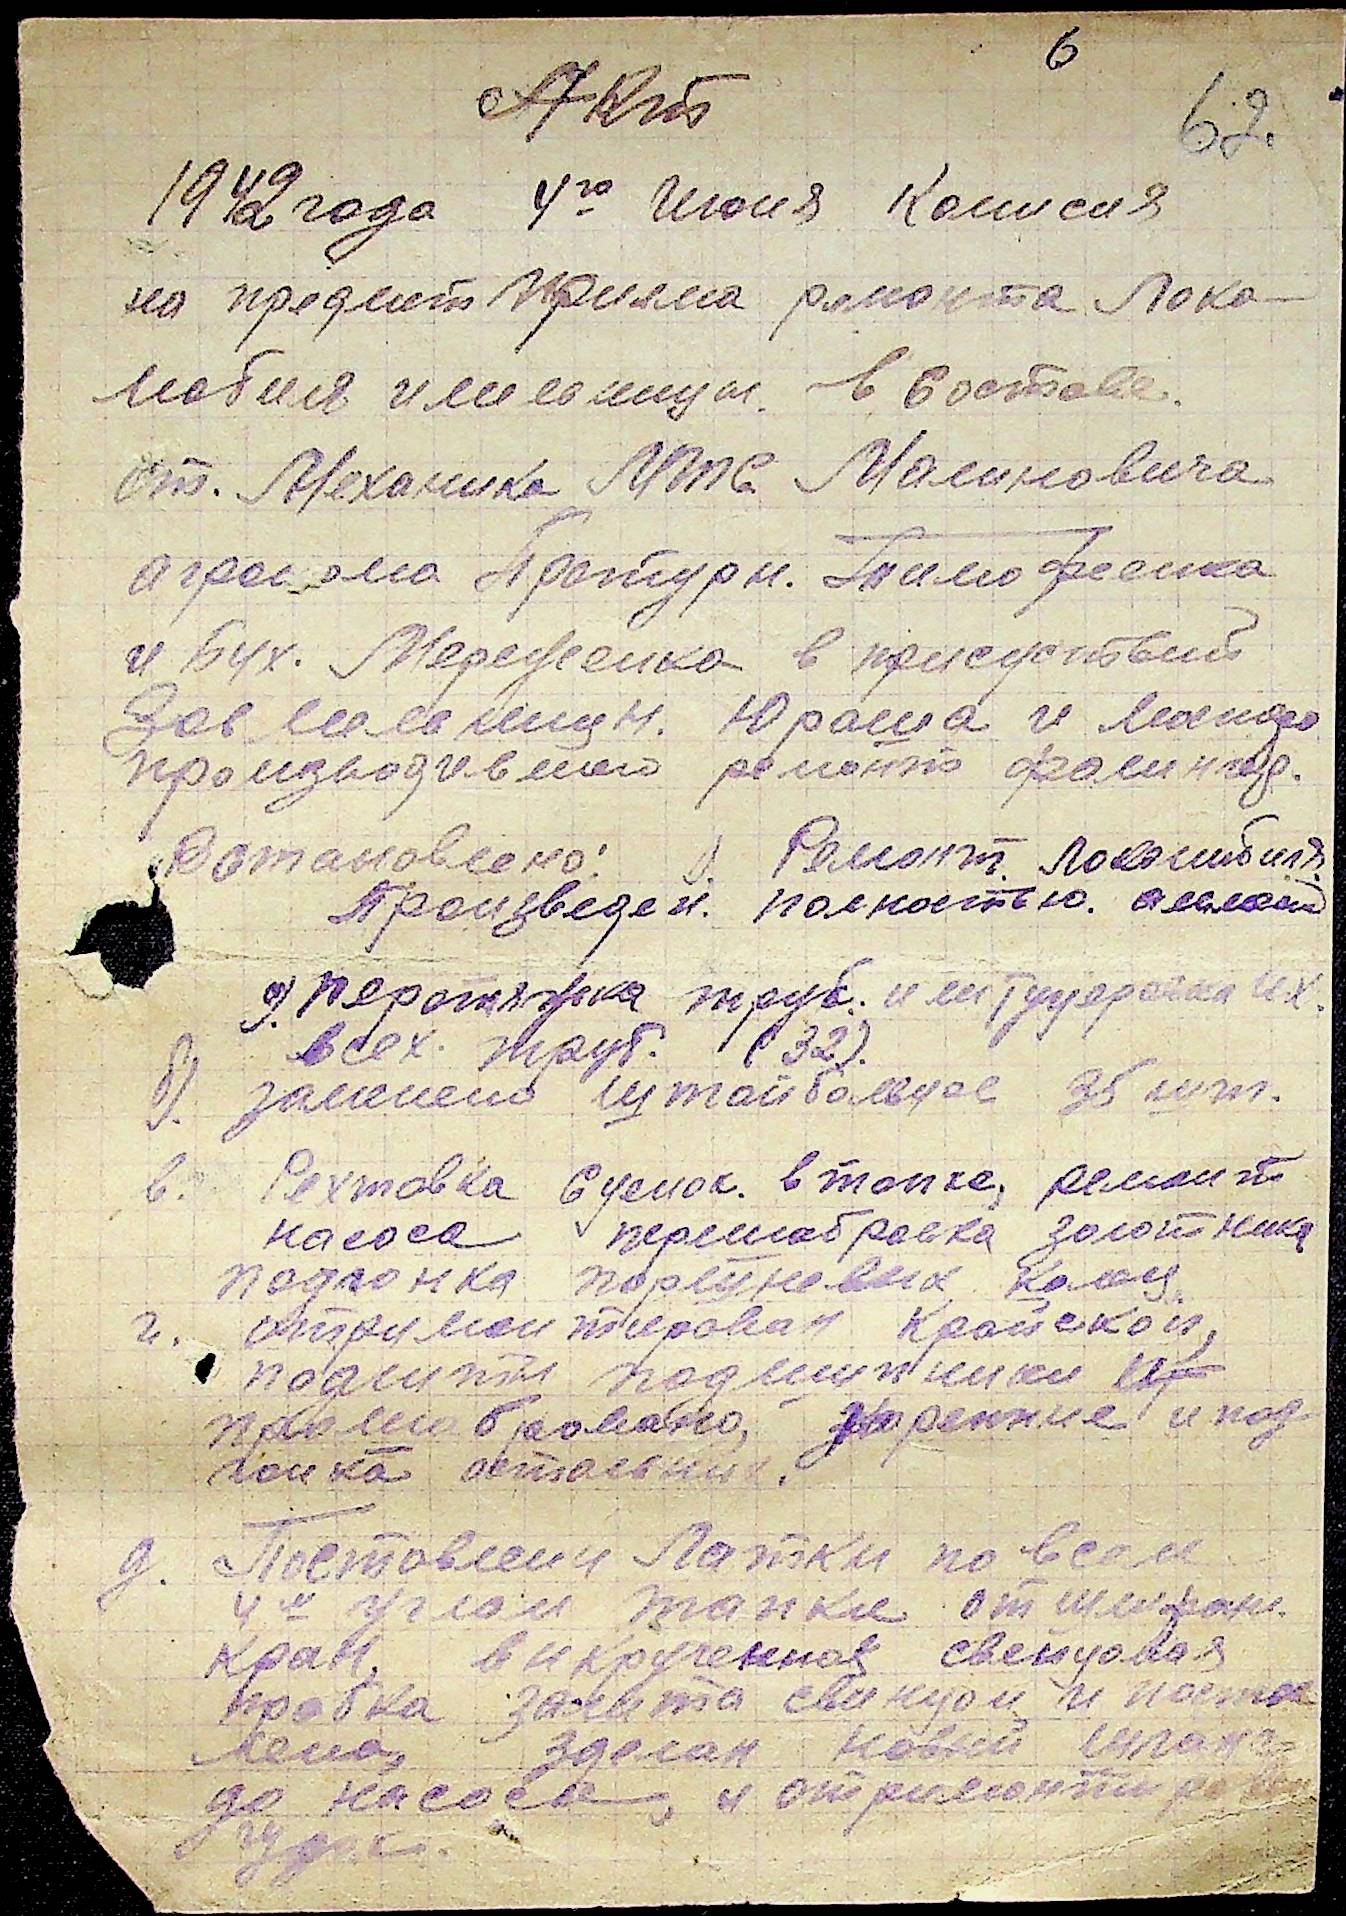 6
62.
Акт
1942 года 4го Июня Комисия
на предмет Прийма ремонта Локо-
мобиля и мельницы. в Составе.
ст. Механика МТС Малиновича
агронома Тимофеенка
и Бух. Мереженка в присуствии
Зав мельницы. Юраша и
производившего ремонт
Встановлено: 1. Ремонт. локомибиля.
Произведен. полностью.
а) Перетяжка труб. их.
всех. труб. (32).
б). заменено штойбольцов 36 шт.
в. Рехтовка Сценок. в топке, ремонт
насоса перешабровка золотника
подгонка поршневих колец.
г. отримонтирован Крайскоп,
подлити подшипники
прошабровано, Коренние и под
гонка остальних.
д. Постовлени Латки по всем
4м углом топки отшлифован.
кран, викрученная свенцовая
пробка залита свинцом и постав
лена, зделан новий шланг
до насоса, и отримонтирован
гудок.